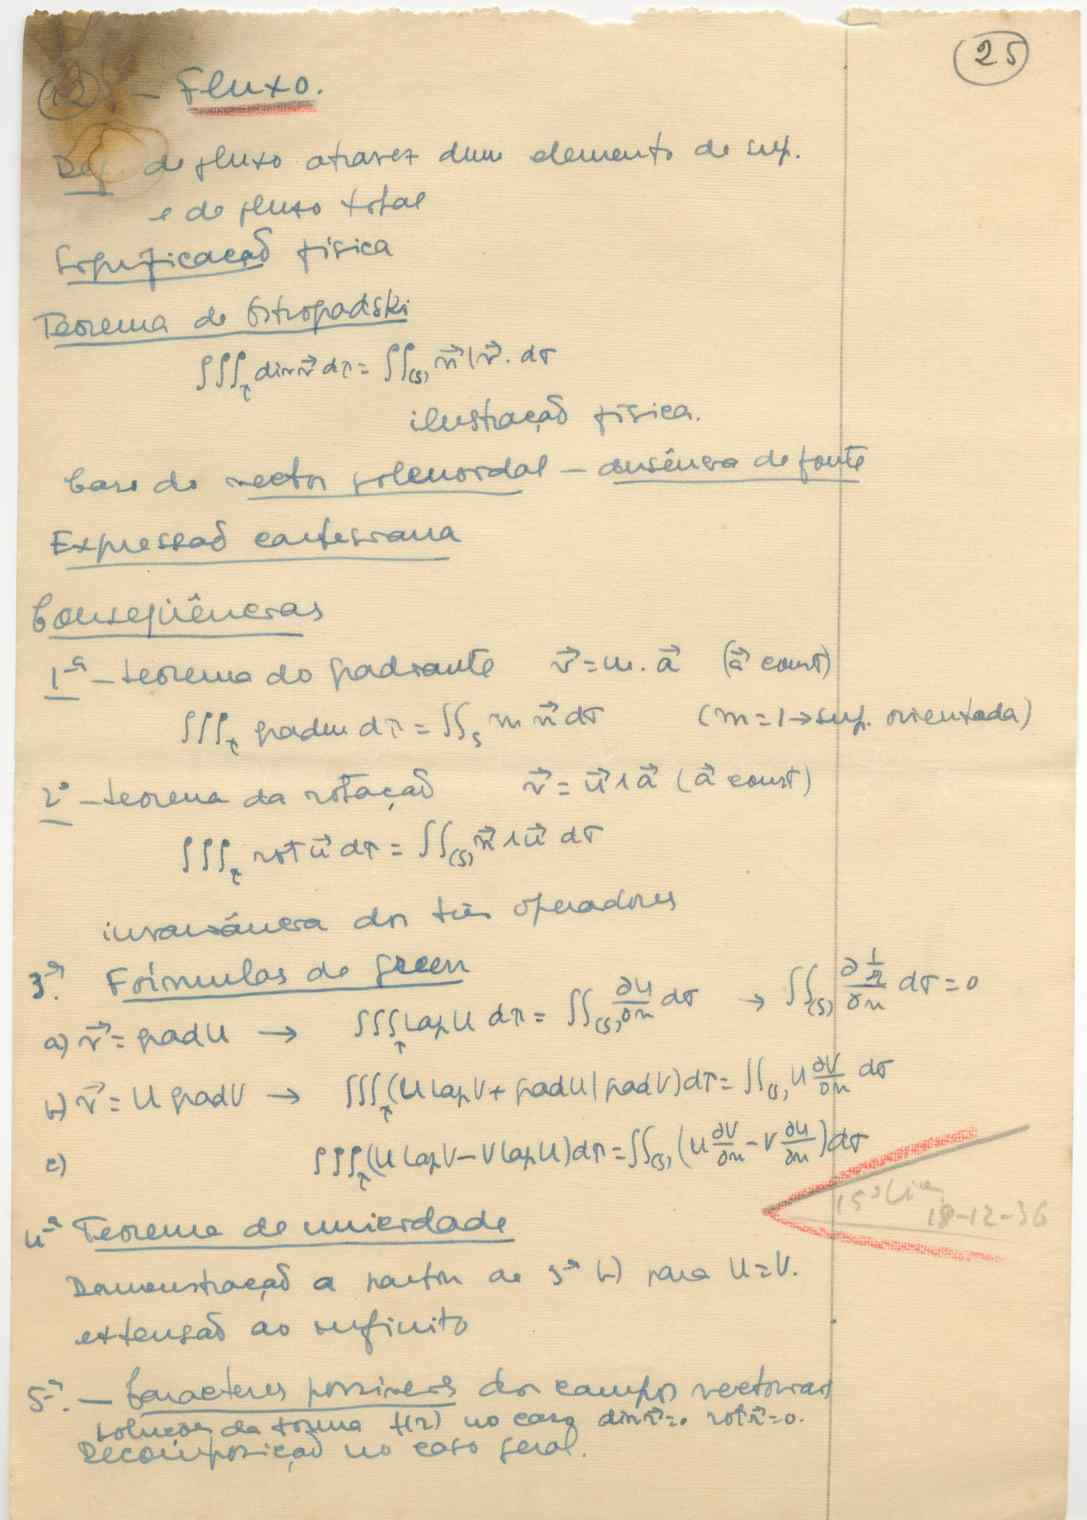 25
12 - Fluxo.
Def. de fluxo atravez dum elemento de sup.
e do fluxo total
Significação física
Teorema de Ostrogadski
∫∫∫_τ div v⃗ dτ = ∫∫_(S) n⃗ | v⃗ . dσ
ilustração física.
Caso do vector solenoidal – ausência de fonte
Expressão cartesiana
Conseqüências
1ª – teorema do gradiante v⃗ = m . a⃗ (a⃗ const)
∫∫∫_τ grad m dτ = ∫∫_S m n⃗ dσ (m = 1 → sup. orientada)
2ª – teorema da rotação v⃗ = u⃗ ∧ a⃗ (a⃗ const)
∫∫∫_τ rot u⃗ dτ = ∫∫_(S) n⃗ ∧ u⃗ dσ
invariância dos três operadores
3ª. Fórmulas de Green
a) v⃗ = grad U → ∫∫∫_τ lap U dτ = ∫∫_(S) ∂U/∂n dσ → ∫∫_(S) ∂(1/r)/∂n dσ = 0
b) v⃗ = U grad V → ∫∫∫_τ (U lap V + grad U | grad V) dτ = ∫∫_(S) U ∂V/∂n dσ
c) ∫∫∫_τ (U lap V – V lap U) dτ = ∫∫_(S) (U ∂V/∂n – V ∂U/∂n) dσ
15ª Liç.
18-12-36
4ª Teorema de unicidade
Demonstração a partir de 3ª b) para U = V.
extensão ao infinito
5ª. – Caracteres possiveis dos campos vectoriais
soluções da forma f(r) no caso div v⃗ = 0 rot v⃗ = 0.
Decomposição no caso geral.